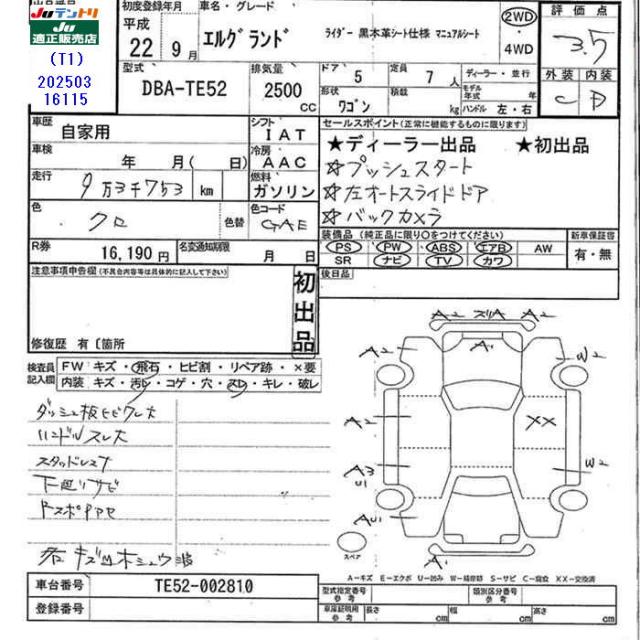 Juテントリ
Ju適正販売店
(T1)
202503
16115
初度登録年月
平成 22年 9月
車名・グレード
エルグランド
ライダー 黒本革シート仕様 マニュアルシート
2WD
・
4WD
評価点
3.5
外装 内装
C D
型式
DBA-TE52
排気量
2500
CC
ドア 5
形状
ワゴン
定員 7人
積載 kg
ディーラー・並行
モデル年式 年
ハンドル 左・右
車歴
自家用
シフト
IAT
車検
年 月( 日)
冷房
AAC
走行
9万3千753 km
燃料
ガソリン
色
クロ
色替
色コード
GAE
R券 16,190円
名変通知期限 月 日
セールスポイント(正常に機能するものに限ります。)
★ディーラー出品 ★初出品
☆プッシュスタート
☆左オートスライドドア
☆バックカメラ
装備品(純正品に限り○をつけてください)
PS PW ABS エアB AW
SR ナビ TV カワ
新車保証書
有・無
後日品
注意事項申告欄(不具合内容等は具体的に記入して下さい)
初出品
修復歴 有〔箇所
検査員記入欄
FW キズ・飛石・ヒビ割・リペア跡・×要
内装 キズ・汚レ・コゲ・穴・スレ・キレ・破レ
ダッシュ板ヒビワレ大
ハンドルスレ大
スタッドレス
下廻りサビ
A2 A1 A2
A2 W2
A2 XX
W2
U1
AU1
A1
スペア
A-キズ E-エクボ U-凹み W-補修跡 S-サビ C-腐食 XX-交換済
車台番号 TE52-002810
登録番号
型式指定番号 参考
類別区分番号 参考
車庫証明用 参考
長さ cm
幅 cm
高さ cm